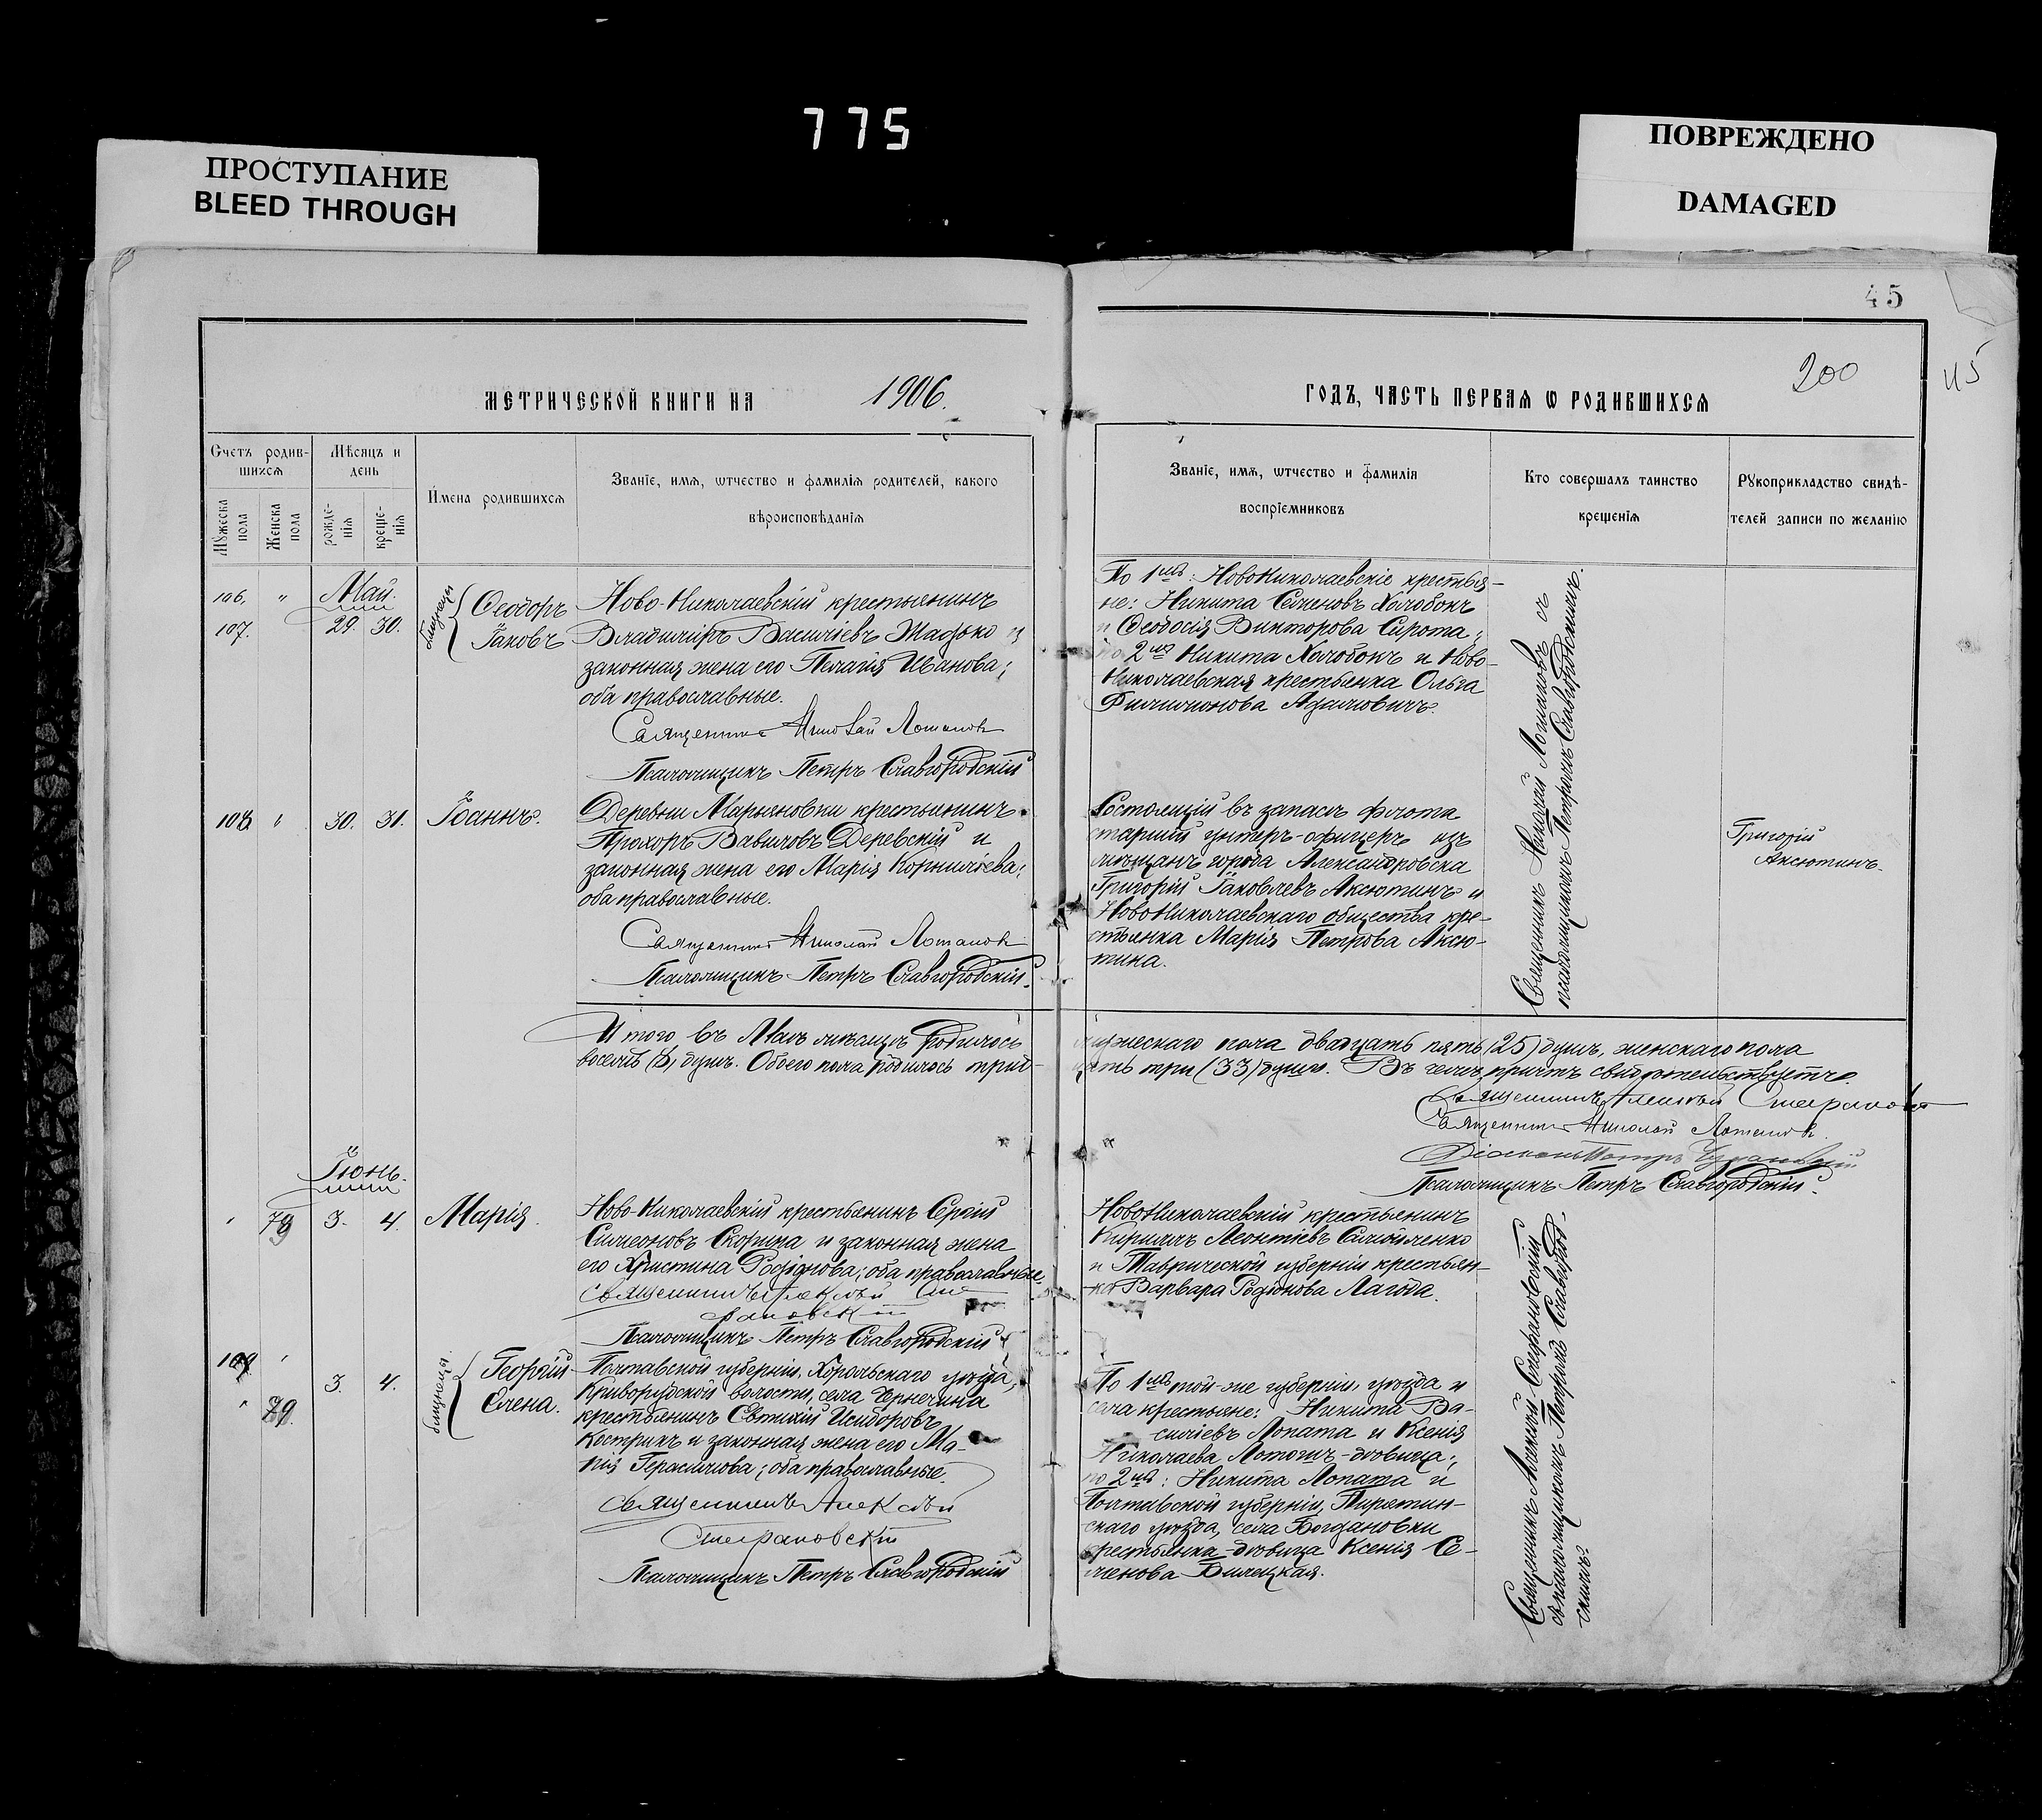 775
ПРОСТУПАНИЕ
BLEED THROUGH
ПОВРЕЖДЕНО
DAMAGED
45
200
45
МЕТРИЧЕСКОЙ КНИГИ НА 1906.
ГОДЪ, ЧАСТЬ ПЕРВАЯ Ѡ РОДИВШИХСЯ
Счетъ родив-
шихся
Мѣсяцъ и
день
Мужеска
пола
Женска
пола
рожде-
нія
креще-
нія
Имена родившихся
Званіе, имя, ѿтчество и фамилія родителей, какого
вѣроисповѣданія
Званіе, имя, ѿтчество и фамилія
воспріемниковъ
Кто совершалъ таинство
крещенія
Рукоприкладство свидѣ-
телей записи по желанію
106. " Май.
107. 29. 30.
близнецы
Ѳеодоръ
Іаковъ
Ново-Николаевскій крестьянинъ
Владиміръ Василіевъ и
законная жена его Пелагія Иванова;
оба православные.
Священникъ Николай Лоташовъ
Псаломщикъ Петръ Славгородскій
По 1мъ: НовоНиколаевскіе крестья-
не: Никита Семеновъ Холобокъ
и Ѳеодосія Викторова Сирота;
по 2мъ Никита Холобокъ и Ново-
Николаевская крестьянка Ольга
Филимонова Адамовичъ.
Священникъ Николай Лоташовъ съ
псаломщикомъ Петромъ Славгородскимъ.
108. " 30. 31. Іоаннъ.
Деревни Марьяновки крестьянинъ
Прохоръ Вавиловъ Деревскій и
законная жена его Марія Корниліева;
оба православные.
Священникъ Николай Лоташовъ
Псаломщикъ Петръ Славгородскій.
Состоящій въ запасѣ флота
старшій унтеръ-офицеръ изъ
мѣщанъ города Александровска
Григорій Іаковлевъ Аксютинъ и
НовоНиколаевскаго общества кре-
стьянка Марія Петрова Аксю-
тина.
Григорій
Аксютинъ.
Итого въ Маѣ мѣсяцѣ родилось
мужескаго пола двадцать пять (25) душъ, женскаго пола
восемь (8) душъ. Обоего пола родилось трид-
цать три (33) души. Въ чемъ причтъ свидѣтельствуетъ.
Священникъ Алексѣй
Священникъ Николай Лоташовъ.
Діаконъ Петръ
Псаломщикъ Петръ Славгородскій.
Іюнь.
79 3. 4. Марія.
Ново-Николаевскій крестьянинъ Сергій
Симеоновъ Скорина и законная жена
его Христина Родіонова; оба православные.
Священникъ Алексѣй Сте-
фановскій
Псаломщикъ Петръ Славгородскій
НовоНиколаевскій крестьянинъ
Кириллъ Леонтіевъ
и Таврической губерніи крестьян-
ка Варвара Родіонова Лагода.
109 "
" 3. 4.
близнецы.
Георгій
Елена.
Полтавской губерніи, Хорольскаго уѣзда,
Криворудской волости, села
крестьянинъ Евтихій Исидоровъ
Кострикъ и законная жена его Ма-
рія Герасимова; оба православные.
Священникъ Алексѣй
Стефановскій
Псаломщикъ Петръ Славгородскій
По 1мъ той-же губерніи, уѣзда и
села крестьяне: Никита Ва-
силіевъ Лопата и Ксенія
Николаева дѣвица;
по 2мъ: Никита Лопата и
Полтавской губерніи, Пирятин-
скаго уѣзда, села Богдановки
крестьянка-дѣвица Ксенія Се-
менова Билецкая.
Священникъ Алексѣй Стефановскій
съ псаломщикомъ Петромъ Славгород-
скимъ.